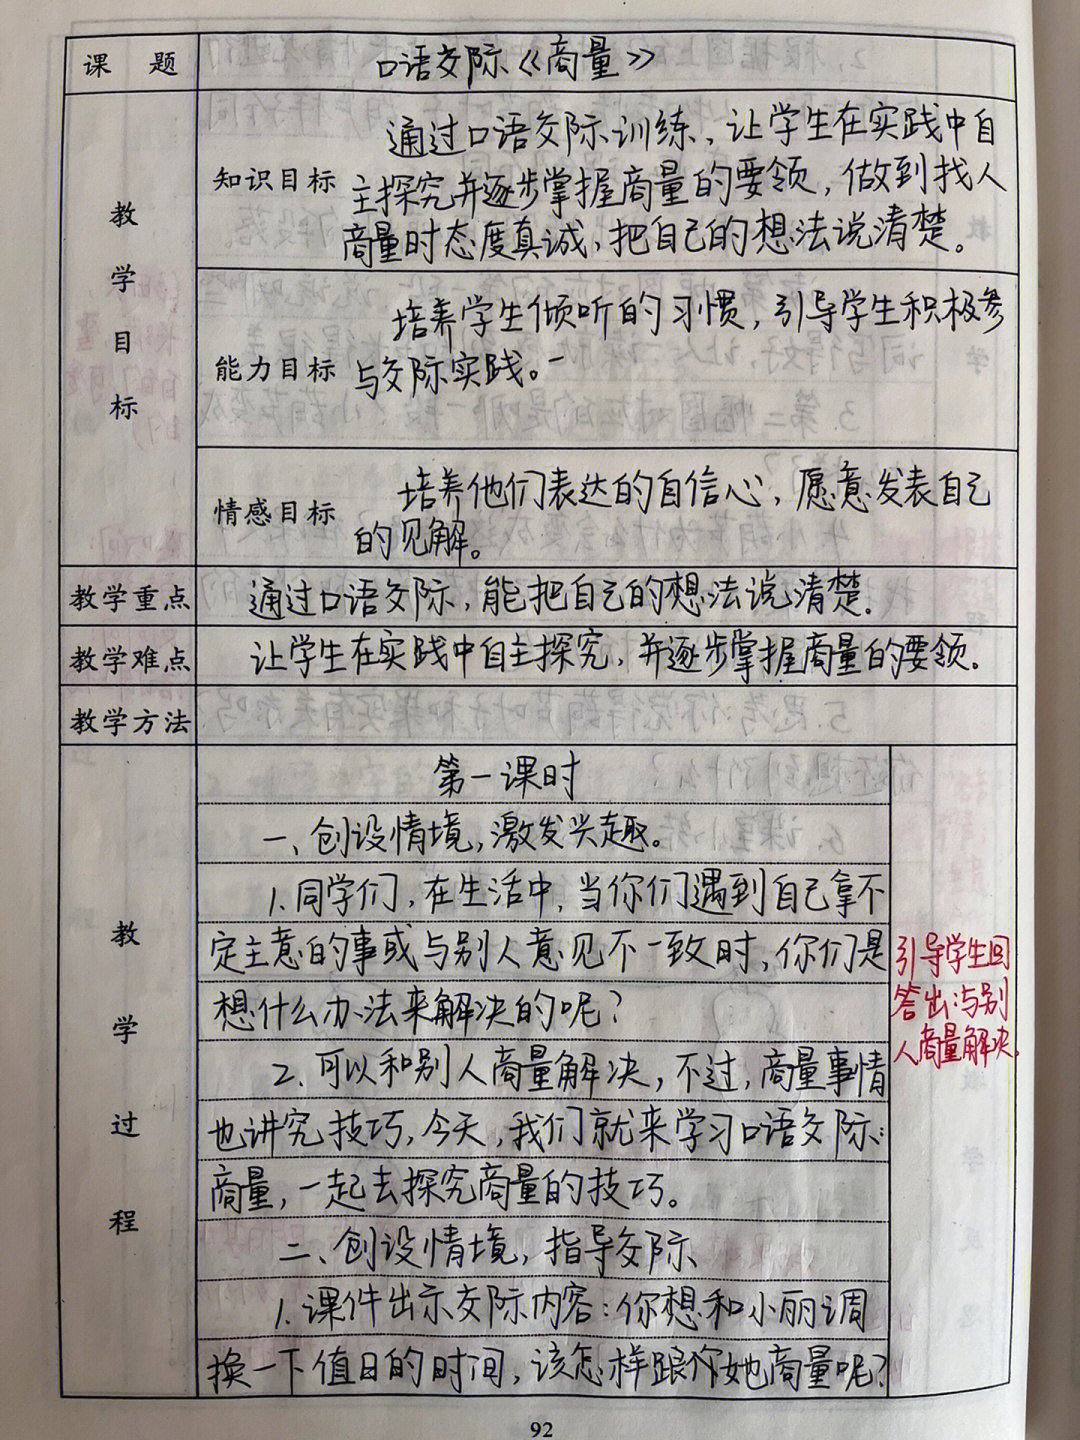 课 题 口语交际《商量》
教学目标
知识目标
通过口语交际训练,让学生在实践中自
主探究并逐步掌握商量的要领,做到找人
商量时态度真诚,把自己的想法说清楚。
能力目标
培养学生倾听的习惯,引导学生积极参
与交际实践。
情感目标
培养他们表达的自信心,愿意发表自己
的见解。
教学重点 通过口语交际,能把自己的想法说清楚.
教学难点 让学生在实践中自主探究,并逐步掌握商量的要领.
教学方法
教学过程
第一课时
一、创设情境,激发兴趣。
1.同学们,在生活中,当你们遇到自己拿不
定主意的事或与别人意见不一致时,你们是
想什么办法来解决的呢?
2.可以和别人商量解决,不过,商量事情
也讲究技巧,今天,我们就来学习口语交际:
商量,一起去探究商量的技巧。
二、创设情境,指导交际、
1.课件出示交际内容:你想和小丽调
换一下值日的时间,该怎样跟她商量呢?
引导学生回
答出:与别
人商量解决.
92